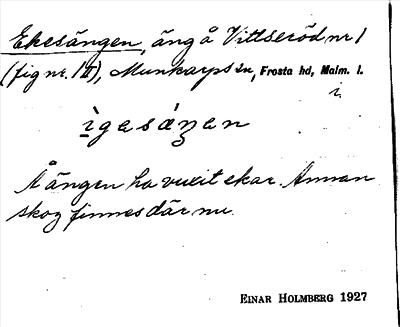 Ekesängen, äng å Vittseröd nr 1
(fig nr. 1 II), Munkarps sn, Frosta hd, Malm. l.
i.
ìgasáŋan
Å ängen ha vuxit ekar. Annan
skog finnes där nu.
EINAR HOLMBERG 1927